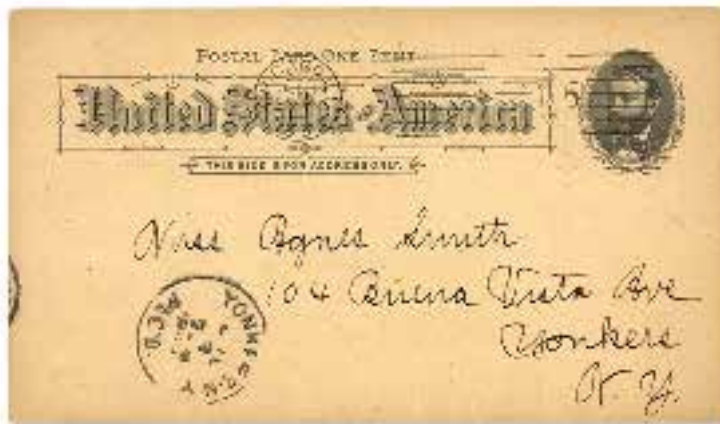 POSTAL CARD ONE CENT
United States of America
THIS SIDE IS FOR ADDRESS ONLY.
Miss Agnes Smith
104 Buena Vista Ave
Yonkers
N. Y.
YONKERS N.Y.
REC'D